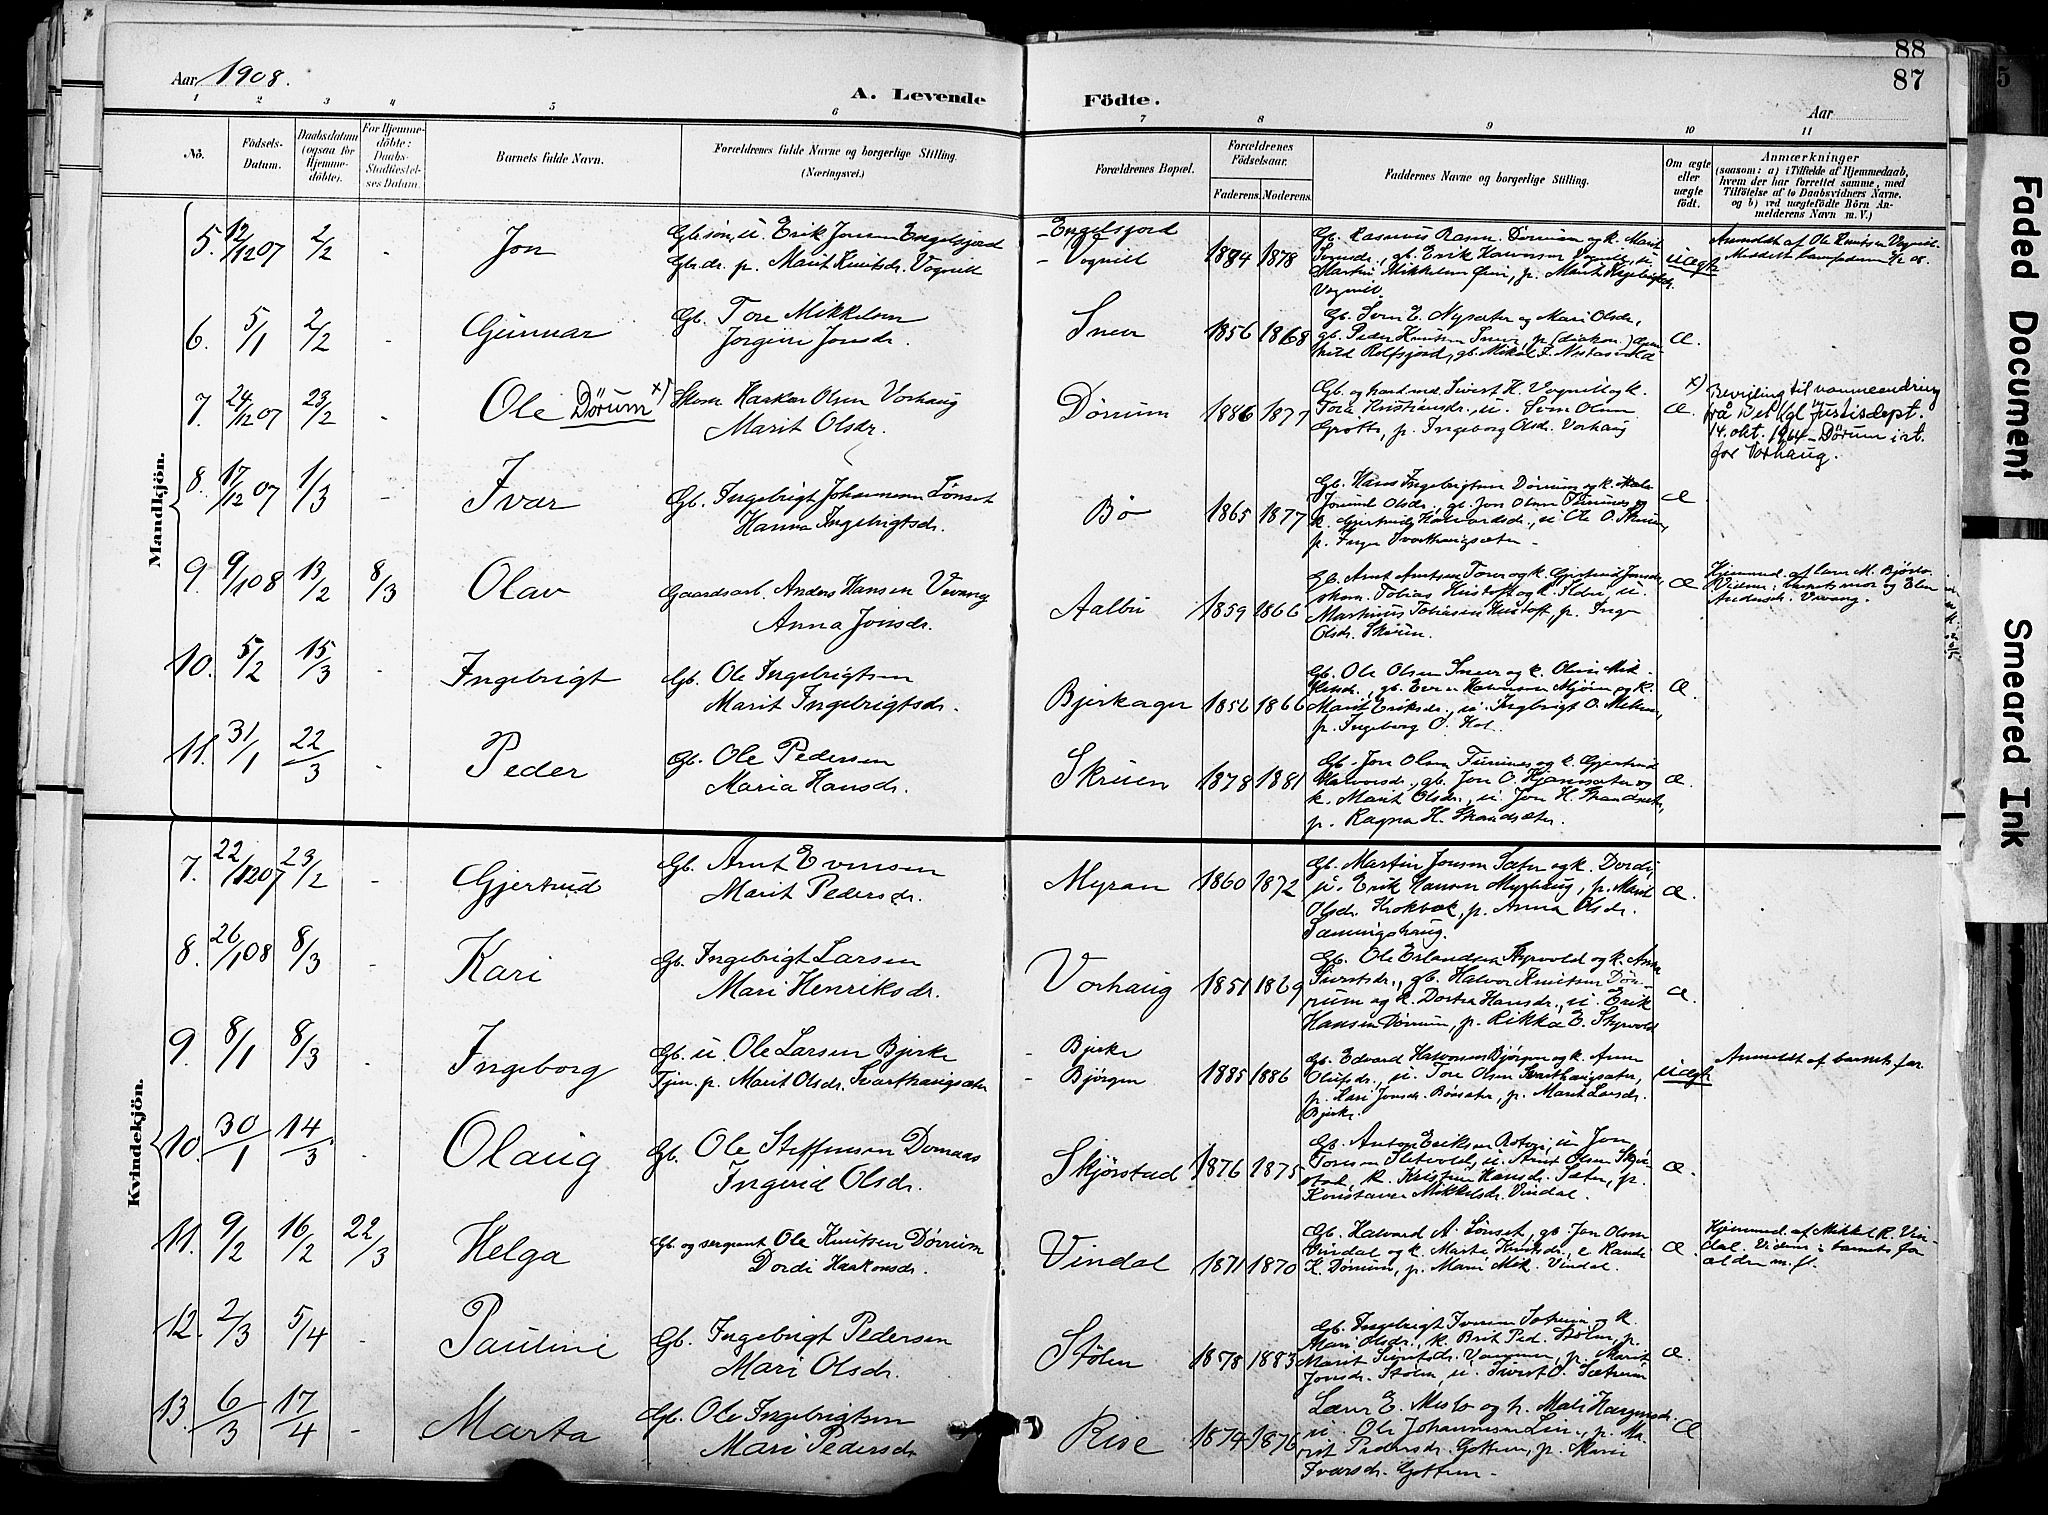 88
87
Aar 1908.
A. Levende Födte.
Aar
1 2 3 4 5 6 7 8 9 10 11
No.
Födsels-Datum.
Daabsdatum (ogsaa for Hjemmedöbte).
For Hjemmedöbte: Daabs-Stadfæstelses Datum.
Barnets fulde Navn.
Forældrenes fulde Navne og borgerlige Stilling. (Næringsvei.)
Forældrenes Bopæl.
Forældrenes Födselsaar.
Faderens. Moderens.
Faddernes Navne og borgerlige Stilling.
Om ægte eller uægte födt.
Anmærkninger
(saasom: a) i Tilfælde af Hjemmedaab, hvem der har forrettet samme, med Tilföielse af to Daabsvidners Navne. og b) ved uægtefödte Börn Anmelderens Navn m. V.)
Mandkjön.
5. 12/12 07 2/2 Jon
Gb.søn, u. Erik Jonsen Engelsjord
Gbdr. p. Marit Knutsdr. Vognill
- Engelsjord
- Vognill
1884 1878
Gb. Rasmus Rasm. Dørrum og k. Marit
gb. Erik Halvorsen
Vognill
uægte
Anmeldt af Ole Knutsen Vognill.
6. 5/1 2/2 - Gunnar
Gb. Tore Mikkelsen
Jørgine Jonsdr.
Snen
1856 1868
Gb. Sven E. Nysæter og Mari Olsdr,
gb. Peder Knutsen
Æ.
7. 24/12 07 23/2 - Ole Dørum x)
Skom. Haakon Olsen Vorhaug
Marit Olsdr.
Dørrum
1886 1877
Gb. og Sivert H. Vognill og k.
Tore Kristiansdr., u. Sven Olsen
p. Ingeborg Olsdr. Vorhaug
Æ.
x) Bevilling til navneendring
frå Det kgl Justisdept.
14. okt. 1964 - Dørum ist.
for Vorhaug.
8. 17/12 07 1/3 - Ivar
Gb. Ingebrigt Johansen Lønset
Hanna Ingebrigtsdr.
Bø
1865 1877
Gb. Hans Ingebrigtsen Dørrum og k.
Olsdr., gb. Jon Olsen Furunes og
k. Gjertrud Halvordsdr., u. Ole O. Skruen,
p. Inga Svarthaugsæter
Æ
9. 9/1 08 13/2 8/3 Olav
Gaardsarb. Anders Hansen Vevang
Anna Jonsdr.
Aalbu
1859 1866
Gb. Arnt Arntsen og k. Gjertrud Jonsdr
skom. Tobias
Olsdr. Skruen.
Æ
Hjemmed. af lærer M. Bjørlo
Vidner: barnets mor og
Andersdr. Vevang.
10. 5/2 15/3 - Ingebrigt
Gb. Ole Ingebrigtsen
Marit Ingebrigtsdr.
Bjerkager
1852 1866
Gb. Ole Olsen Snen og k.
Marit Eriksdr., u. Ingebrigt O.
p. Ingeborg O. Hol.
Æ
11. 31/1 22/3 - Peder
Gb. Ole Pedersen
Maria Hansdr.
Skruen
1878 1881
Gb. Jon Olsen Furunes og k. Gjertrud
Halvorsdr., gb. Jon O. og
k. Marit Olsdr., u. Jon H. Strandsæter,
p. Ragna H. Strandsæter.
Æ.
Kvindekjön.
7. 22/12 07 23/2 - Gjertrud
Gb. Arnt Evensen
Marit Pedersdr.
Myran
1860 1872
Gb. Martin Jonsen Sæter og k. Dordi,
u. Erik Hansen Myrhaug, p. Marit
Olsdr. Krokbæk, p. Anna Olsdr.
Æ.
8. 26/1 08 8/3 - Kari
Gb. Ingebrigt Larsen
Mari Henriksdr.
Vorhaug
1851 1869
Gb. Ole Erlandsen Styrvold og k. Anne
Sivertsdr., gb. Halvor Knutsen Dør-
rum og k. Hansdr., u. Erik
Hansen Dørrum, p. Rikka E. Styrvold
Æ.
9. 8/1 8/3 - Ingeborg
Gb. u. Ole Larsen Bjerke
Tjen. p. Marit Olsdr. Svarthaugsæter
- Bjerke
- Bjørgen
1885 1886
Gb. Edvard Halvorsen Bjørgen og k. Anne
Olufsdr., u. Tore Olsen Svarthaugsæter,
p. Kari Jonsdr. Bønsæter, p. Marit Larsdr.
Bjerke.
uægte
Anmeldt af barnets far
10. 30/1 14/3 - Olaug
Gb. Ole Steffensen Domaas
Ingrid Olsdr.
Skjørstad
1876 1875
Gb. Anton Eriksen u. Jon
Toresen Sletvold, u. Arnt Olsen Skjør-
stad, k. Kristine Hansdr. Sæter, p.
Mikkelsdr. Vindal.
Æ
11. 9/2 16/2 22/3 Helga
Gb. og sergeant Ole Knutsen Dørrum
Dordi Haakonsdr.
Vindal
1871 1870
Gb. Halvard A. Lønset, gb. Jon Olsen
Vindal og k. Marte Knutsdr.,
K. Dørrum, p. Mari Mik. Vindal.
Æ.
Hjemmed. af Mikkel K. Vin-
dal. Vidner: barnets for-
ældre m. fl.
12. 2/3 5/4 - Pauline
Gb. Ingebrigt Pedersen
Mari Olsdr.
Stølen
1878 1883
Gb. Ingebrigt Iversen og k.
Mari Olsdr., k. Brit Ped. Stølen, p.
Marit Sivertsdr. p. Marit
Jonsdr. Stølen, u. Sivert O. Sætrum
Æ.
13. 6/3 17/4 - Marta
Gb. Ole Ingebrigtsen
Mari Pedersdr.
Rise
1874 1876
Lærer E. Mislo og h. Mali
u. Ole Johannesen Lien, p. Ma-
rit Pedersdr. Gottem, p. Mari
Ivarsdr. Gottem.
Æ
Faded Document
Smeared Ink